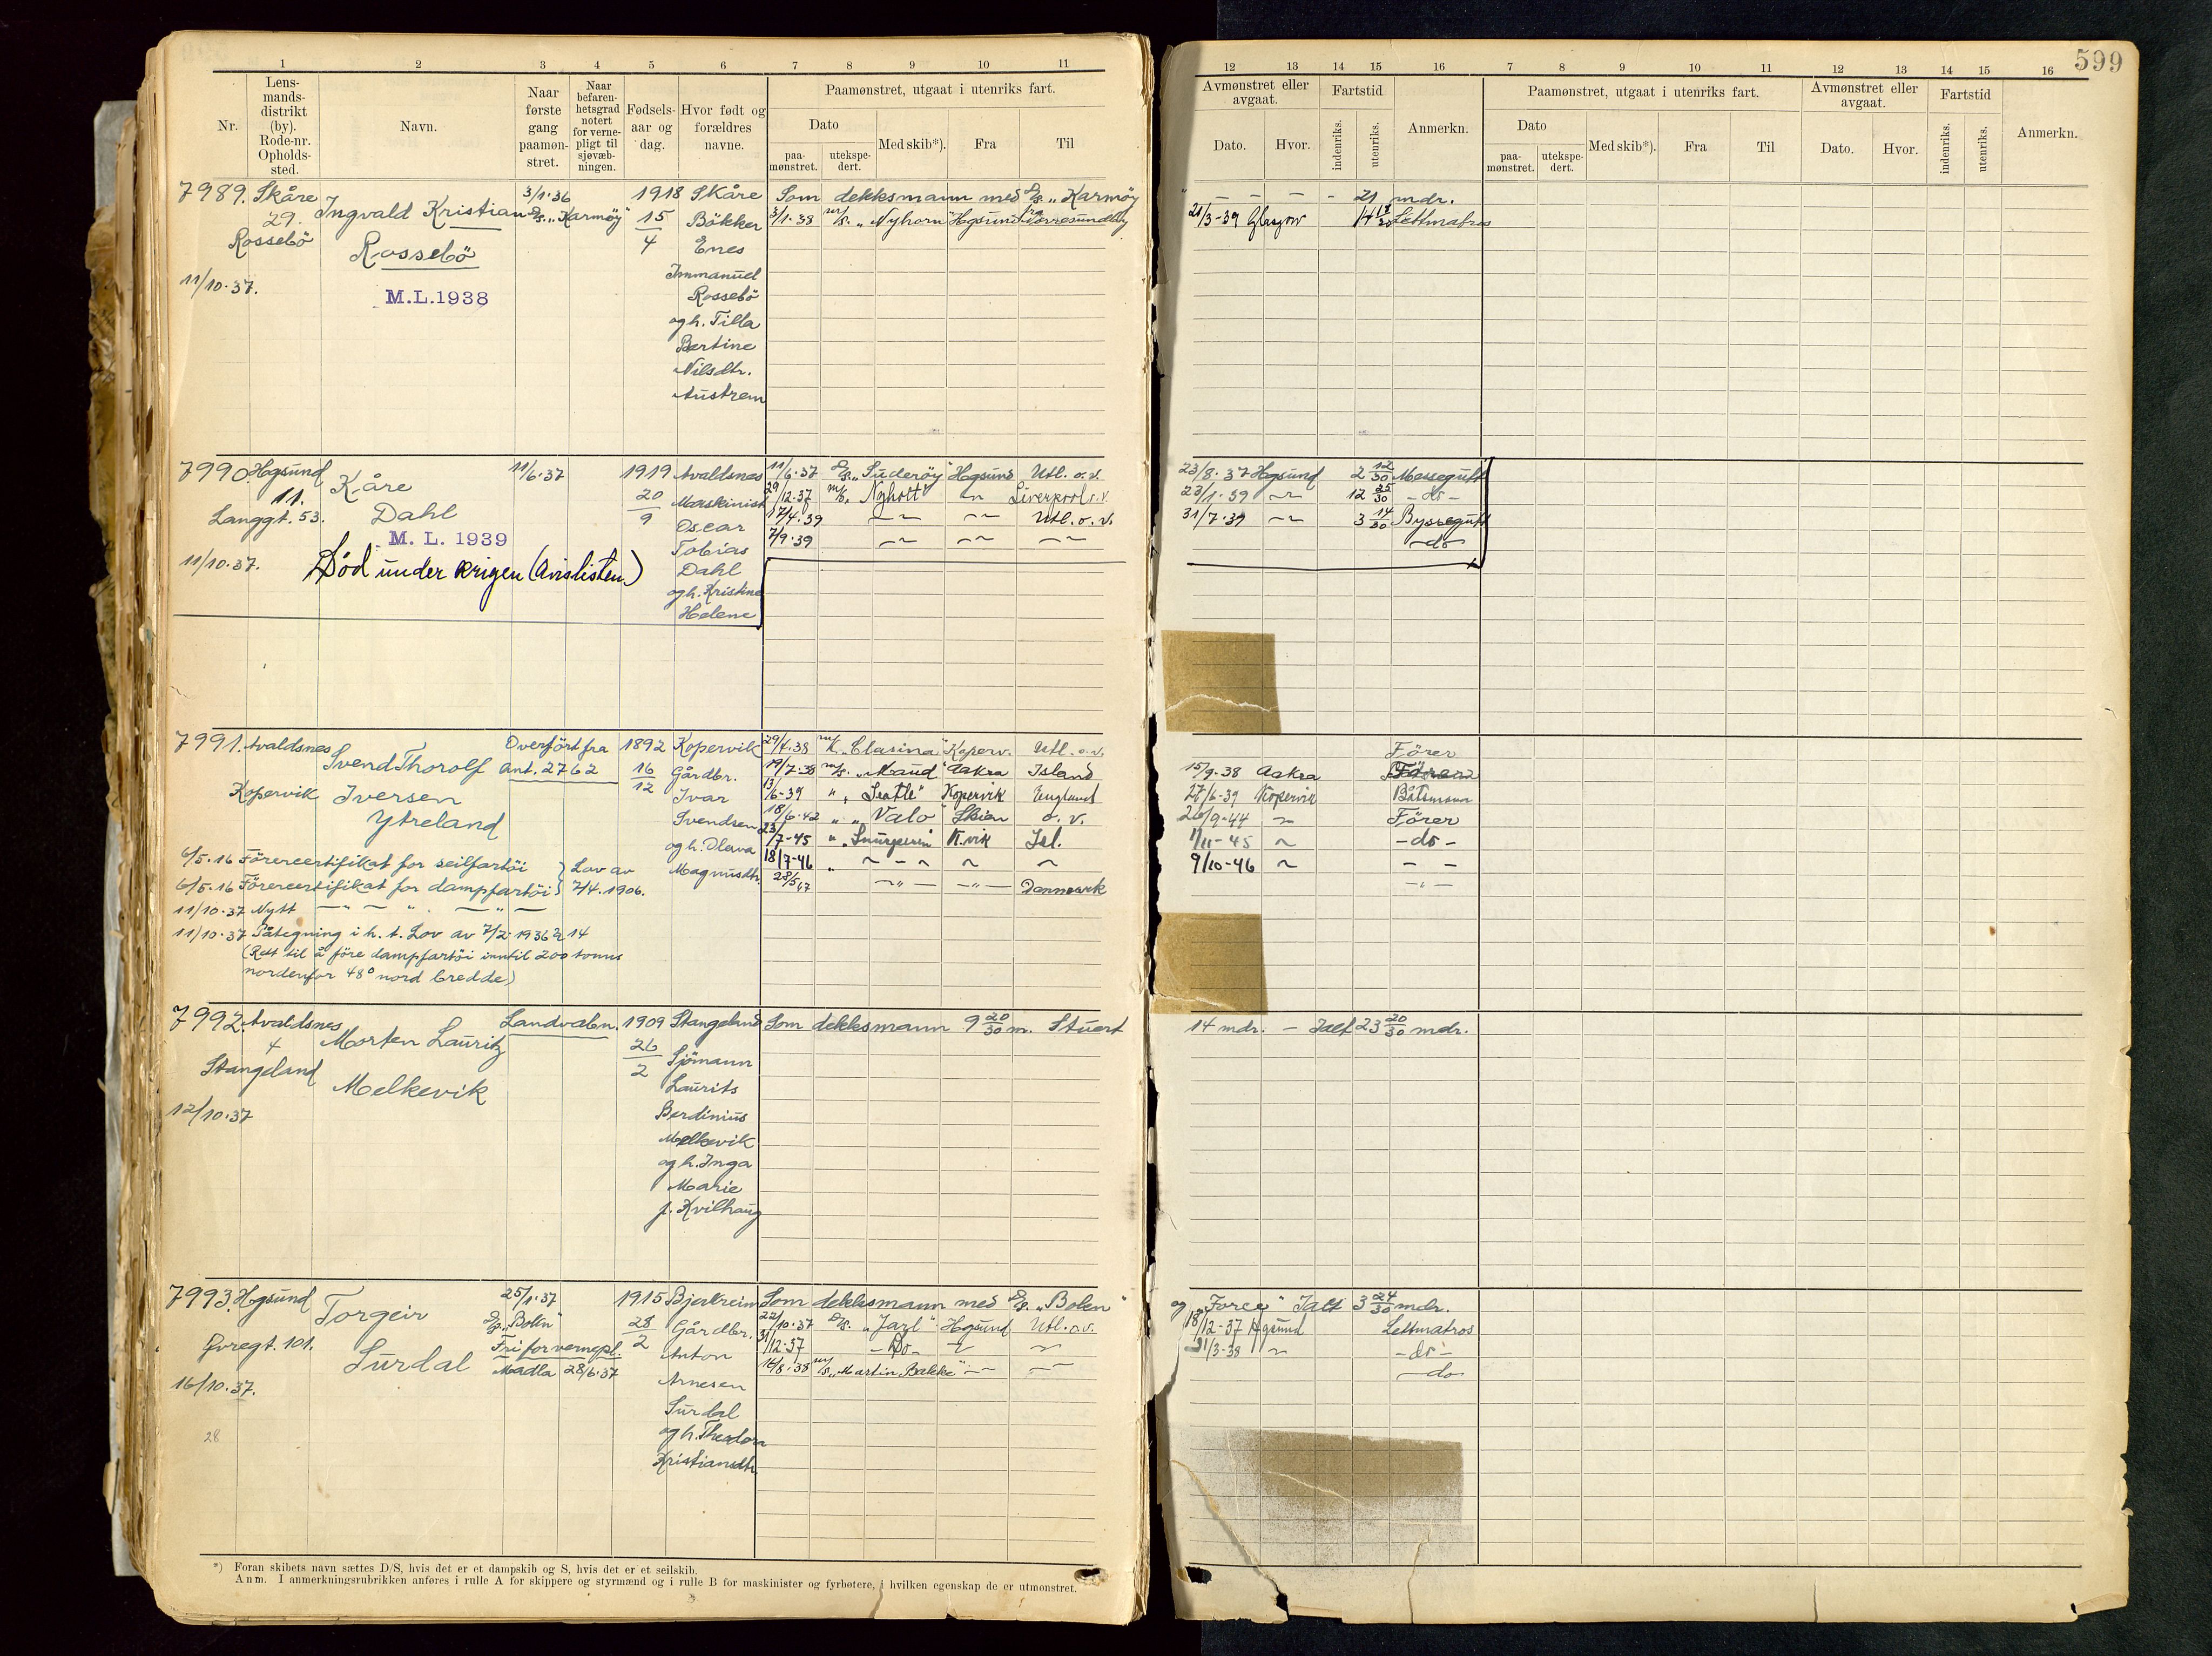 599
1 2 3 4 5 6 7 8 9 10 11
12 13 14 15 16 7 8 9 10 11 12 13 14 15 16
Nr.
Lens-
mands-
distrikt
(by).
Rode-nr.
Opholds-
sted.
Navn.
Naar
første
gang
paamøn-
stret.
Naar
befaren-
hetsgrad
notert
for verne-
pligt til
sjøvæb-
ningen.
Fødsels-
aar og
dag.
Hvor født og
forældres
navne.
Paamønstret, utgaat i utenriks fart.
Dato
paa-
mønstret.
utekspe-
dert.
Med skib*).
Fra
Til
Avmønstret eller
avgaat.
Dato.
Hvor.
Fartstid
indenriks.
utenriks.
Anmerkn.
Paamønstret, utgaat i utenriks fart.
Dato
paa-
mønstret.
utekspe-
dert.
Med skib*).
Fra
Til
Avmønstret eller
avgaat.
Dato.
Hvor.
Fartstid
indenriks.
utenriks.
Anmerkn.
7989. Skåre
29.
Rossebö
11/10.37.
Ingvald Kristian
Rossebö
M.L.1938
3/1.36
D/S. „Karmöy"
1918
15
4
Skåre
Bökker
Enes
Immanuel
Rossebö
og h. Tilla
Bertine
Nilsdtr.
Austrem
Som dekksmann med D/S. „Karmöy
" – – – – 21 mdr.
3/1.38 m/s. „Nyhorn" Hgsund
21/3-39 Glasgow 14 Lettmatros
7990. Hgsund
11.
Langgt. 53.
11/10.37.
Kåre
Dahl
M. L. 1939
Död under krigen (Avislisten)
11/6.37
1919
20
9
Avaldsnes
Maskinist
Oscar
Tobias
Dahl
og h. Kristine
Helene
11/6.37 D/S. „Suderöy" Hgsund Utl. o.v.
29/12.37 m/s. „Nyhott" –"– Liverpool o.v.
17/4.39 –"– –"– Utl. o. v.
7/9.39 –"– –"– –"–
23/8.37 Hgsund 2 12/30 Messegutt
23/1.39 –"– 12 25/30 – do –
31/7.39 –"– 3 14/30 Byssegutt
– do –
7991. Avaldsnes
Kopervik
Svend Thorolf
Iversen
Ytreland
Overfört fra
Ant. 2762
1892
16
12
Kopervik
Gårdbr.
Ivar
Svendsen
og h. Olava
Magnusdtr.
6/5.16 Förercertifikat for seilfartöi
6/5.16 Förercertifikat for dampfartöi
} Lov av
7/4.1906.
11/10.37 Nytt — " — " — " —
11/10.37 Påtegning i h. t. Lov av 7/2.1936 § 14
(Rett til å före dampfartöi inntil 200 tonns
nordenfor 48° nord bredde)
29/4.38 m/k. „Clasina" Koperv. Utl. o.v.
19/7.38 m/s. „Maud" Aakra Island
13/6-39 " „Seatle" Kopervik England
18/6.42 " „Valo" Skien o. v.
23/7-45 " „Snurperen" K.vik Isl.
18/7-46 " ~ – ~ ~ ~
28/5 47 –"– –"– Danmark
Förer
15/9-38 Aakra
27/6-39 Kopervik Båtsmann
26/9-44 ~ Förer
1/11-45 ~ – do –
9/10-46 ~ – –
–"–
7992. Avaldsnes
4
Stangeland
12/10.37
Morten Lauritz
Melkevik
Landvabn.
1909
26
2
Stangeland
Sjömann
Laurits
Berdinius
Melkevik
og h. Inga
Marie
f. Kvilhaug
Som dekksmann 9 20/30 m. Stuert
14 mdr. – Ialt 23 20/30 mdr.
7993. Hgsund
Øvregt. 101.
16/10.37.
28
Torgeir
Surdal
25/1.37
D/S. „Bolen"
Fri for vernepl.
Madla 28/6.37
1915
28
2
Bjerkreim
Gårdbr.
Anton
Arnesen
Surdal
og h. Theodora
Kristiansdtr.
Som dekksmann med D/S. „Bolen"
og „Force" Ialt 3 24/30 mdr.
22/10.37 D/S. „Jarl" Hgsund Utl. o.v.
31/12.37 – Do – –"– ~
14/8.38 m/s. „Martin Bakke" –"– –"–
18/12-37 Hgsund Lettmatros
31/3-38 ~ – do –
– do
*) Foran skibets navn sættes D/S, hvis det er et dampskib og S, hvis det er et seilskib.
Anm. I anmerkningsrubrikken anføres i rulle A for skippere og styrmænd og i rulle B for maskinister og fyrbøtere, i hvilken egenskap de er utmønstret.